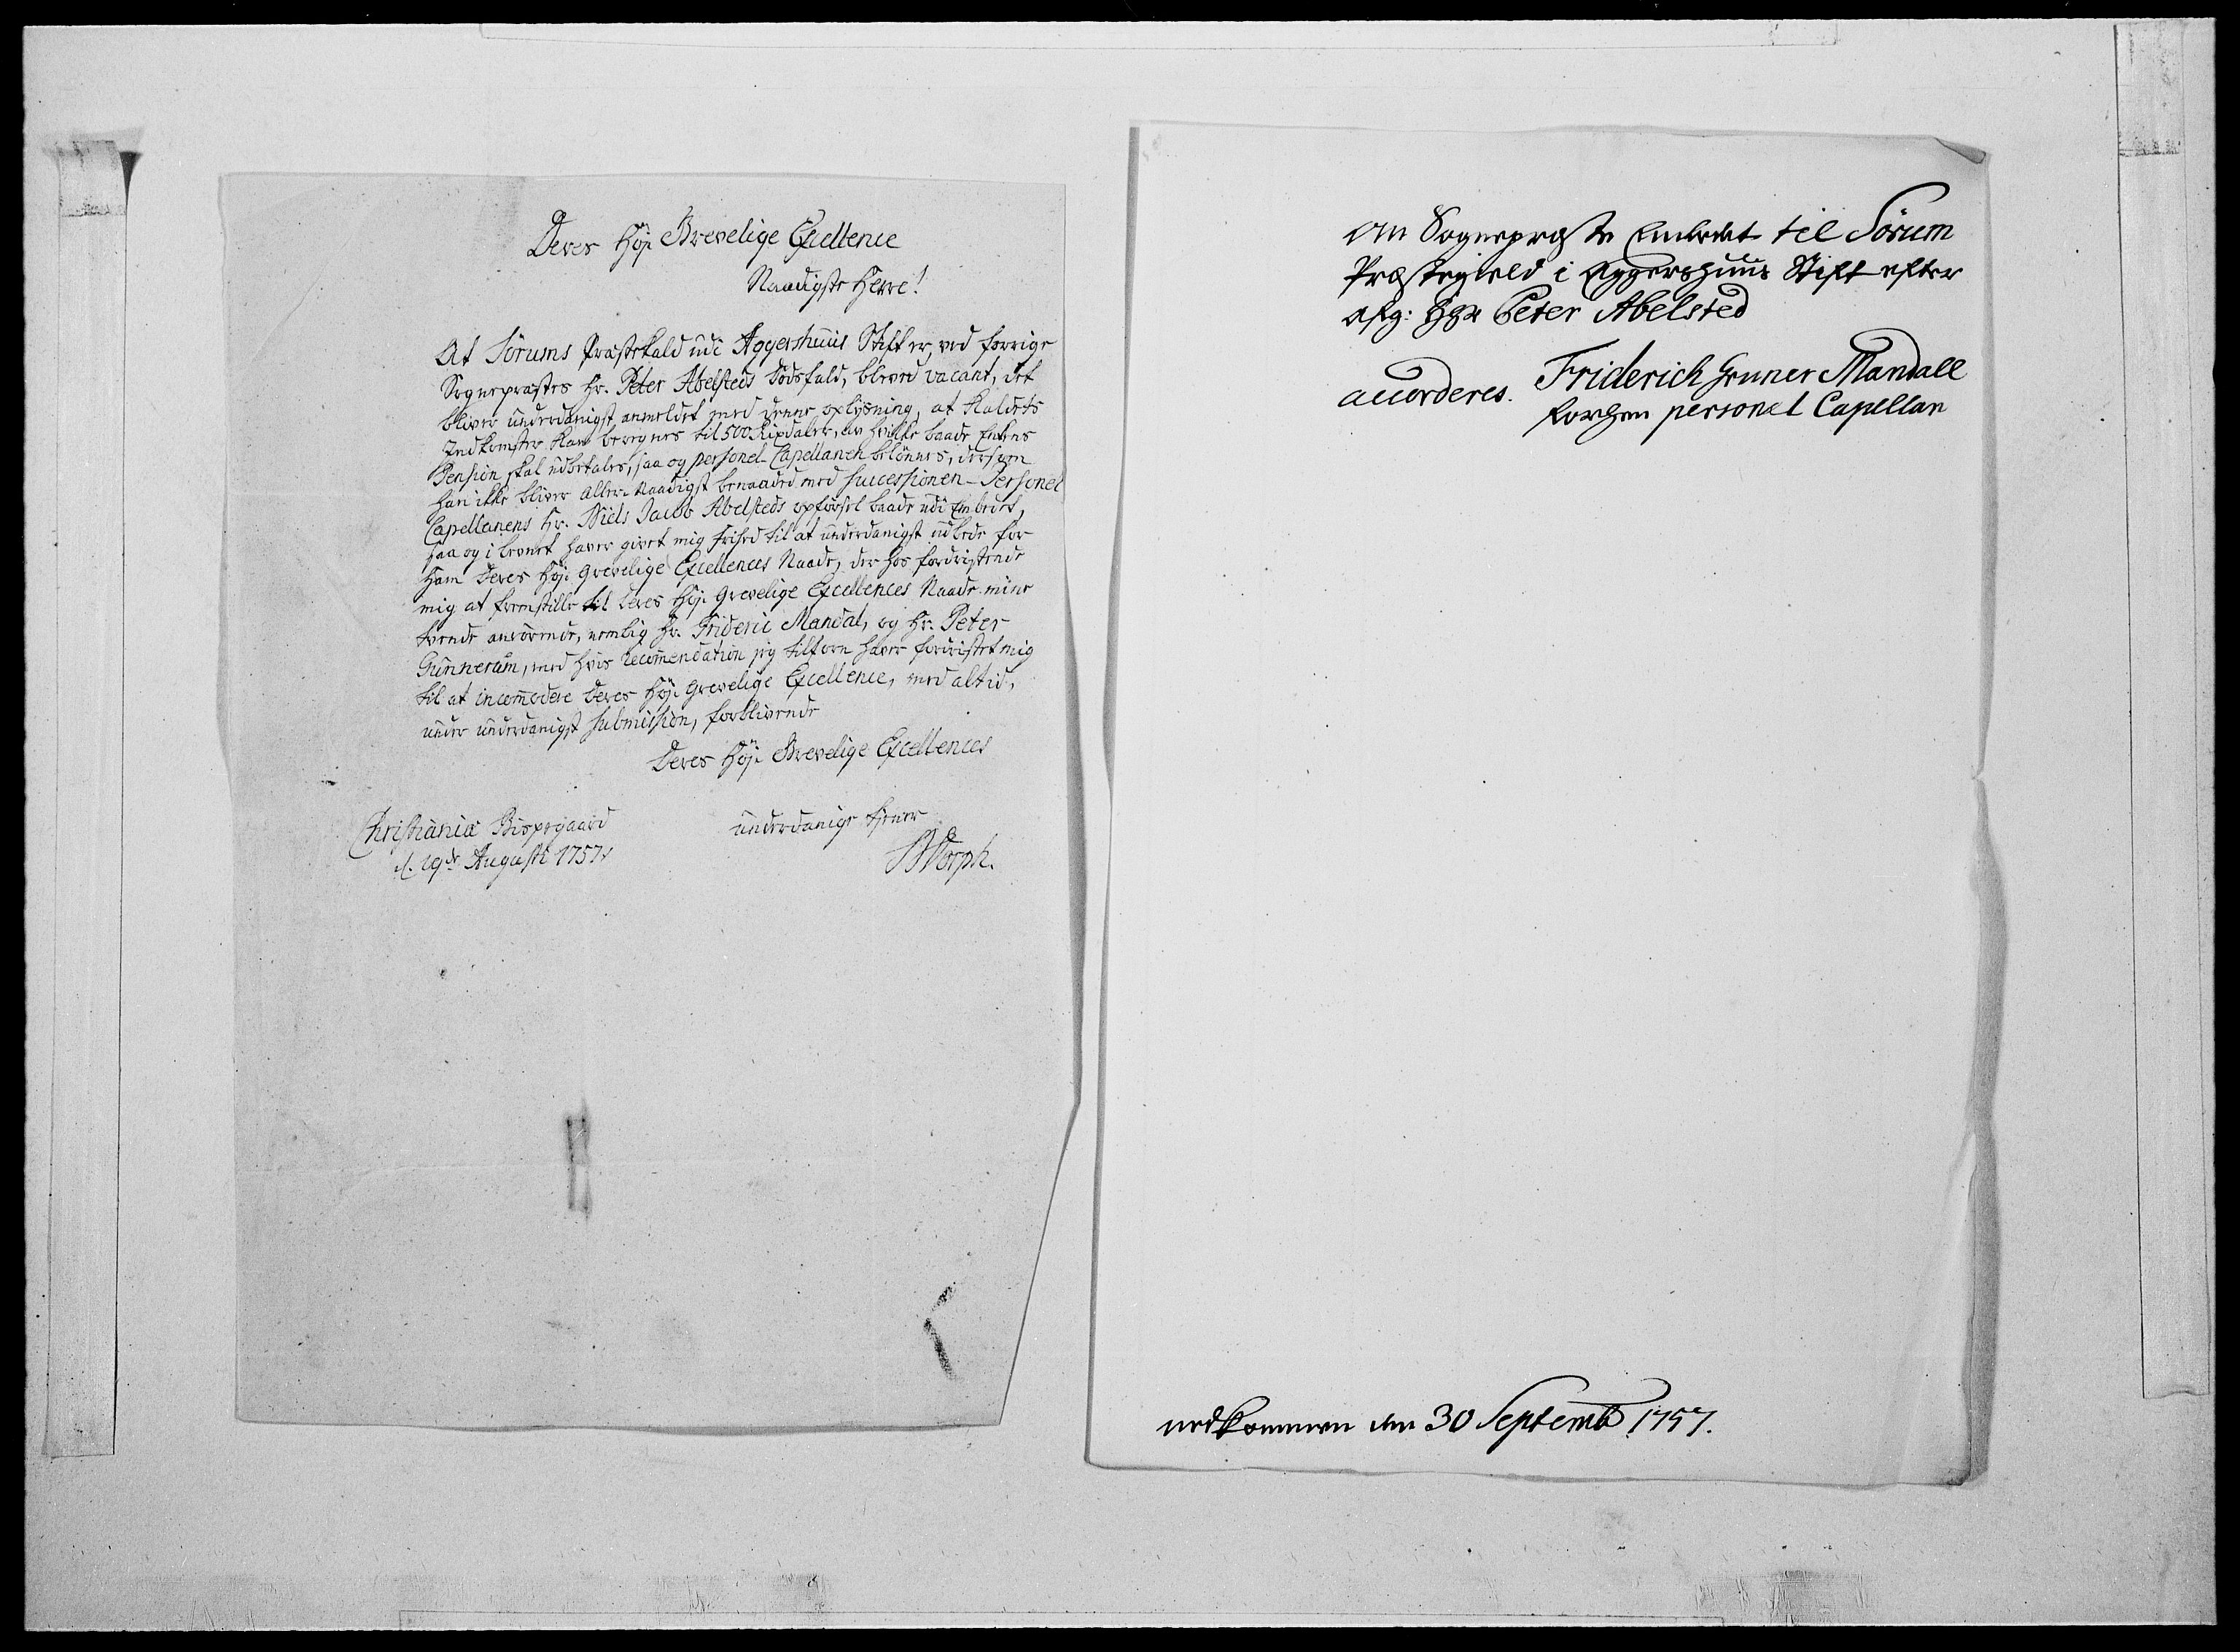 Deres Høj Grevelige Excellence
Naadigste Herre!
At Sörums Præstekald udi Aggershuus Stift er, ved forrige
Sognepræstes Hr. Peter Abelsteds Dödsfald, bleved vacant, det
bliver underdanigst anmeldet med denne oplysning, at Kaldets
Indkomster kan beregnes til 500 Rixdaler, av hvilke baade Enkens
Pension skal udbetales, saa og personel-Capellanen belönnes, dersom
han ikke bliver Aller-Naadigst benaaded med successionen - Personel
Capellanens Hr. Niels Jacob Abelsteds opförsel baade udi Embedet,
saa og i levnet haver givet mig frihed til at underdanigst udbede for
ham Deres Høj Grevelige Excellences Naade, der hos fordristende
mig at fremstille til Deres Høj Grevelige Excellences Naade mine
tvende anvörende, nemlig Hr. Frideric Mandal, og Hr. Peter
Gunnerum, med hvis recommendation jeg tilforn haver fordristet mig
til at incommodere Deres Høj Grevelige Excellence, med altid,
under underdanigst submission, forblivende
Deres Høj Grevelige Excellences
Christiania Bispegaard
d. 19de Augusti 1757.
underdanige tjener
Dorph.
An Sognepræste Embedet til Sörum
Præstegield i Aggershuus Stift efter
afg: Hgr Peter Abelsted
accorderes. Friderich Gruner Mandall
forhen personel Capellan
nedkommen den 30 Septemb 1757.